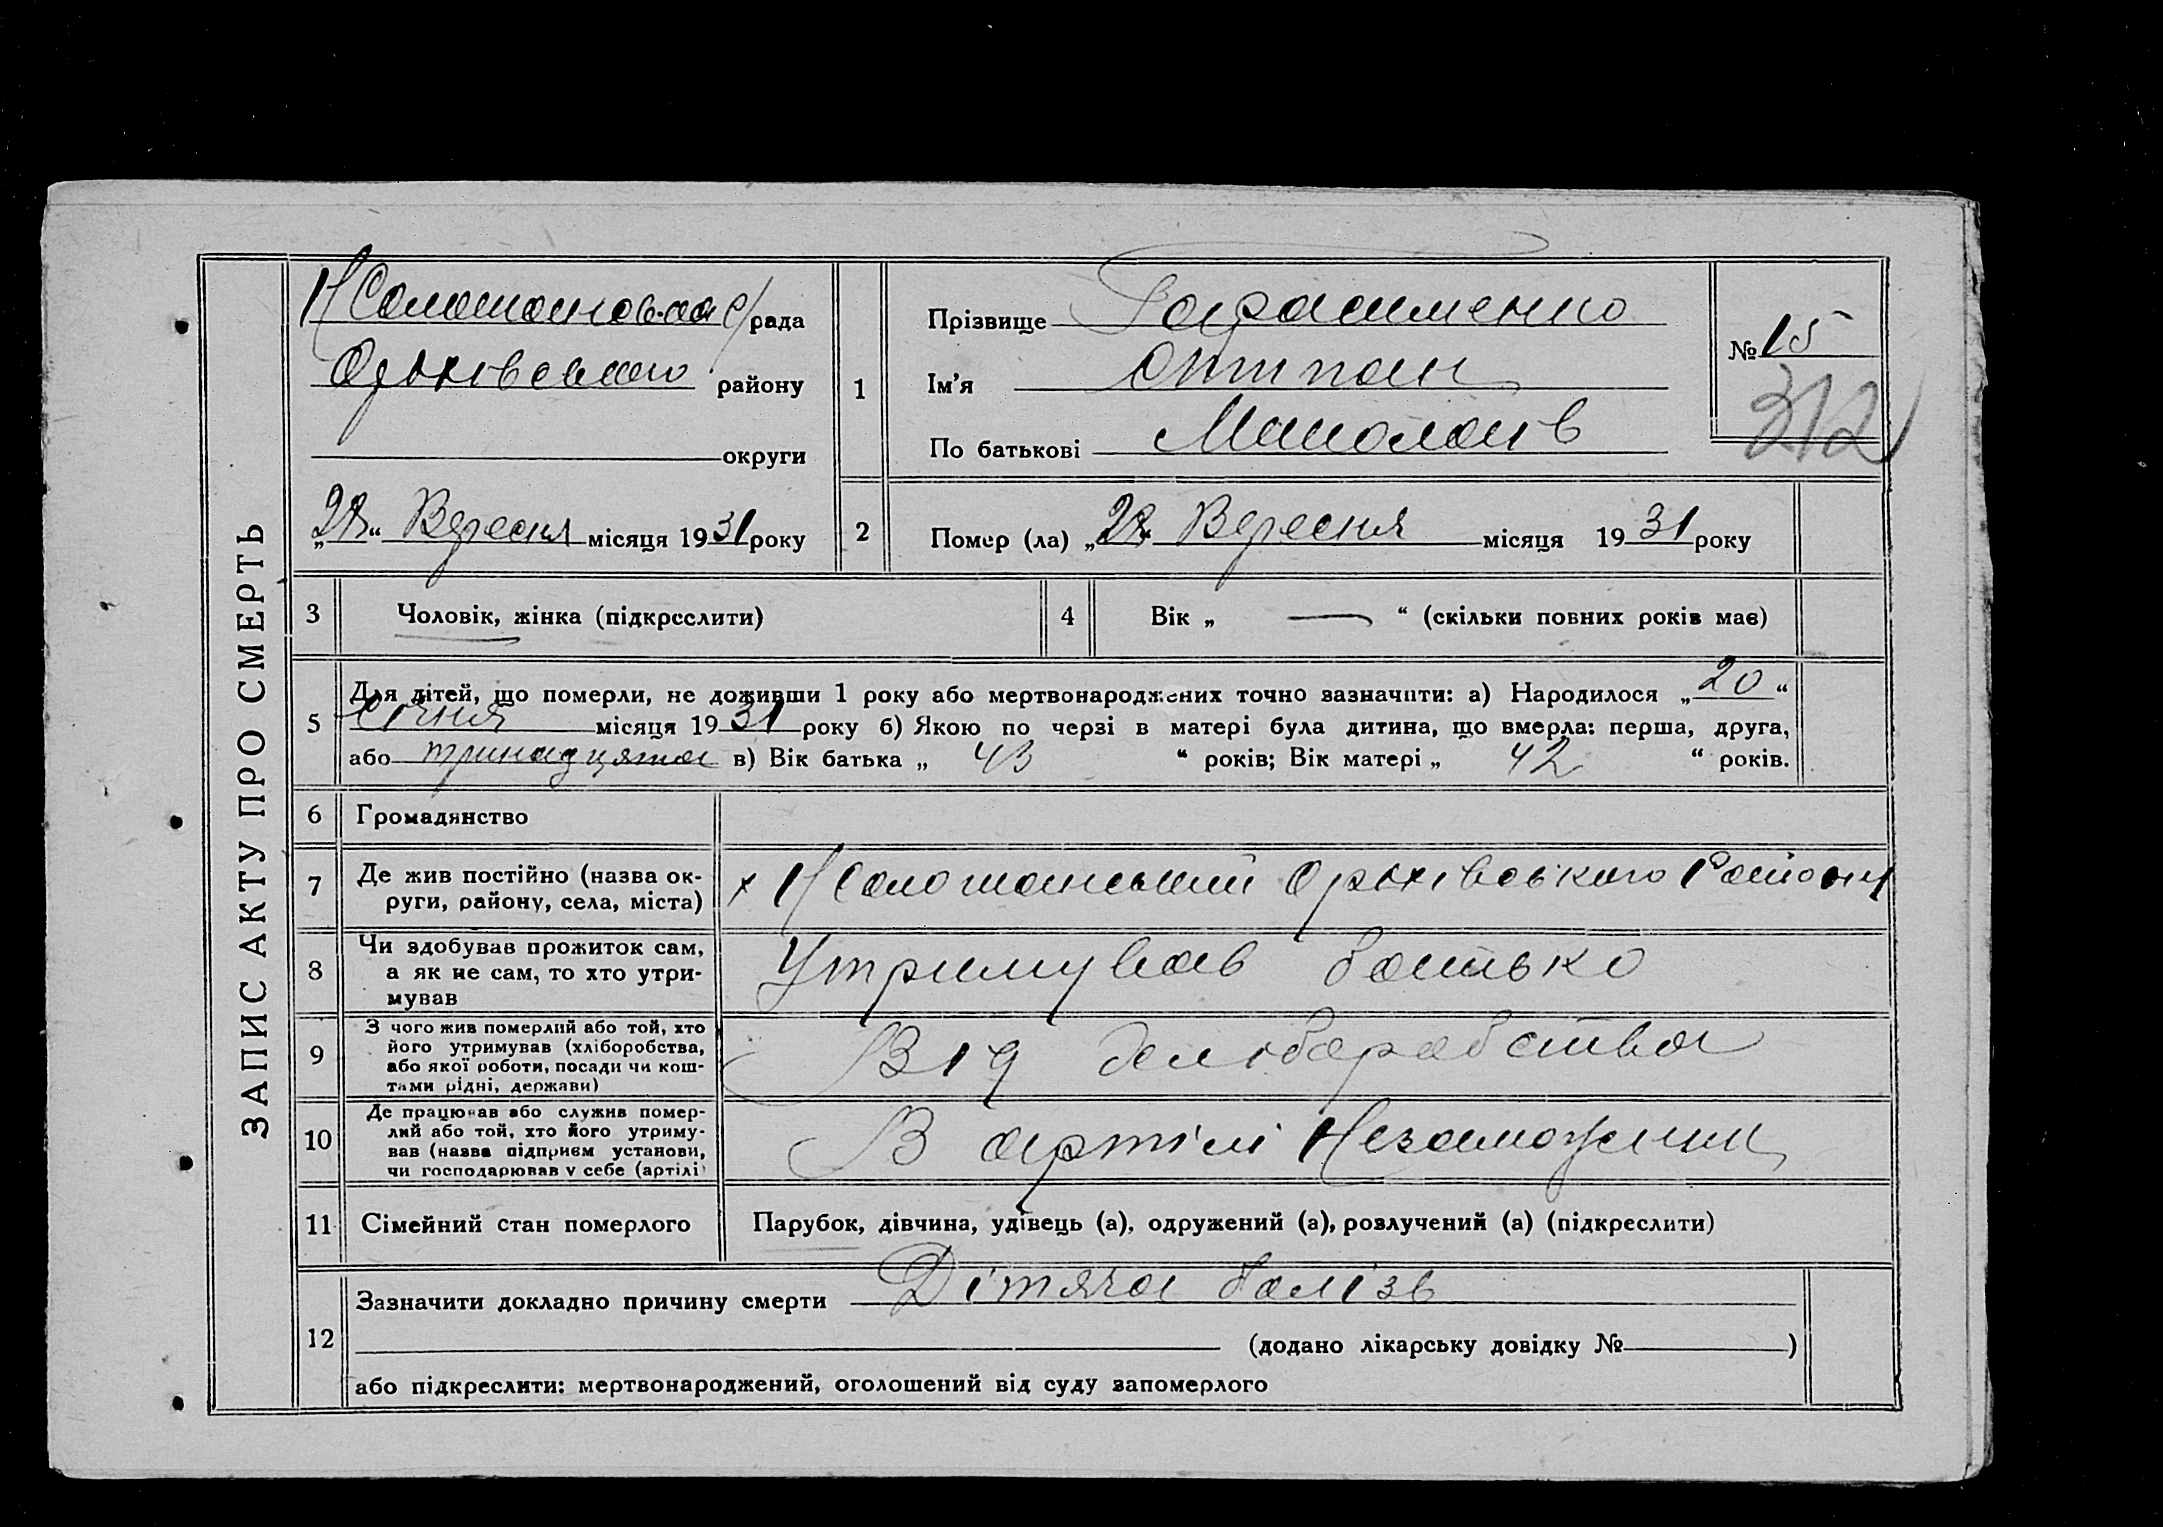 ЗАПИС АКТУ ПРО СМЕРТЬ
с/рада
району
округи
"28" Вересня місяця 1931 року
1
Прізвище Гарасименко
Ім'я
По батькові
№ 15
312
2
Помер (ла) „28" Вересня місяця 1931 року
3 Чоловік, жінка (підкреслити)
4 Вік „ — “ (скільки повних років має)
5 Для дітей, що померли, не доживши 1 року або мертвонароджених точно зазначити: а) Народилося „20“
Січня місяця 1931 року б) Якою по черзі в матері була дитина, що вмерла: перша, друга,
або тринадцята в) Вік батька „ 43 “ років; Вік матері „ 42 “ років.
6 Громадянство
7 Де жив постійно (назва ок-
руги, району, села, міста)
х Оріхівського Району
8 Чи здобував прожиток сам,
а як не сам, то хто утри-
мував
Утримував батько
9 З чого жив померлий або той, хто
його утримував (хліборобства,
або якої роботи, посади чи кош-
тами рідні, держави)
Від
10 Де працював або служив помер-
лий або той, хто його утриму-
вав (назва підприєм установи,
чи господарював у себе (артілі)
В артілі Незаможник
11 Сімейний стан померлого
Парубок, дівчина, удівець (а), одружений (а), розлучений (а) (підкреслити)
12 Зазначити докладно причину смерти Дітяча
(додано лікарську довідку № )
або підкреслити: мертвонароджений, оголошений від суду запомерлого